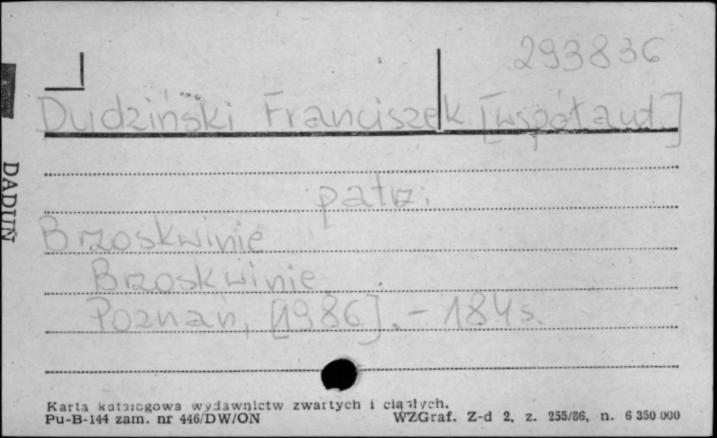 293836
Dudziński Franciszek [współaut.]
patrz:
Brzoskwinie
Brzoskwinie
Poznań, [1986]. - 184 s.
DADUŃ
Karta katalogowa wydawnictw zwartych i ciągłych.
Pu-B-144 zam. nr 446/DW/ON WZGraf. Z-d 2, z. 255/86, n. 6 350 000